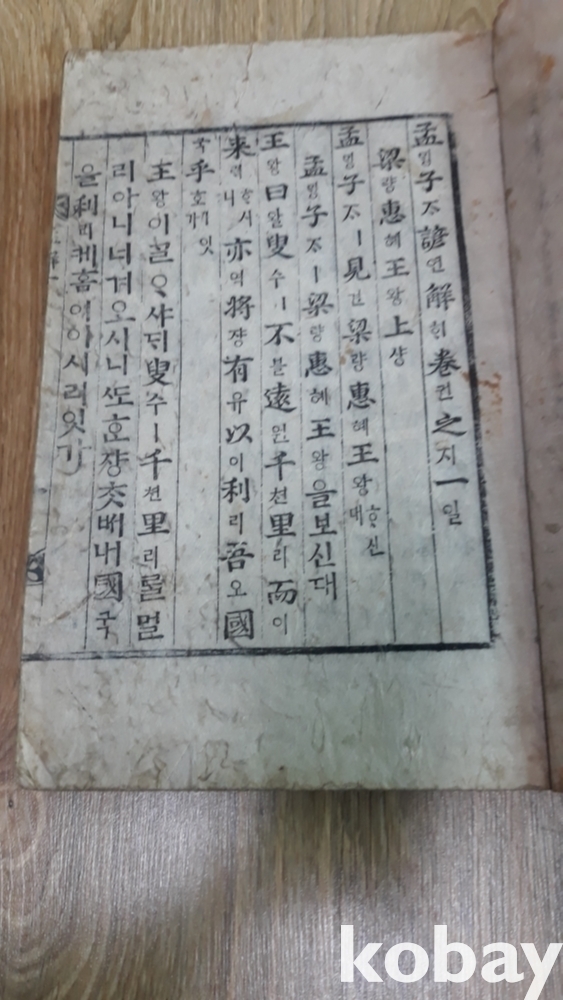 孟ᄆᆡᆼ子ᄌᆞ諺언解ᄒᆡ卷권之지一일
梁량惠혜王왕上샹
孟ᄆᆡᆼ子ᄌᆞㅣ見견梁량惠혜王왕ᄒᆞ신대
孟ᄆᆡᆼ子ᄌᆞㅣ梁량惠혜王왕을보신대
王왕曰왈叟수ㅣ不불遠원千쳔里리而이
來ᄅᆡᄒᆞ시니亦역將쟝有유以이利리吾오國
국乎호ㅣ잇가
王왕이ᄀᆞᆯᄋᆞ샤ᄃᆡ叟수ㅣ千쳔里리ᄅᆞᆯ멀
리아니너겨오시니ᄯᅩᄒᆞᆫ쟝ᄎᆞᆺᄡᅥ내國국
을利리케홈이이시리잇가
kobay